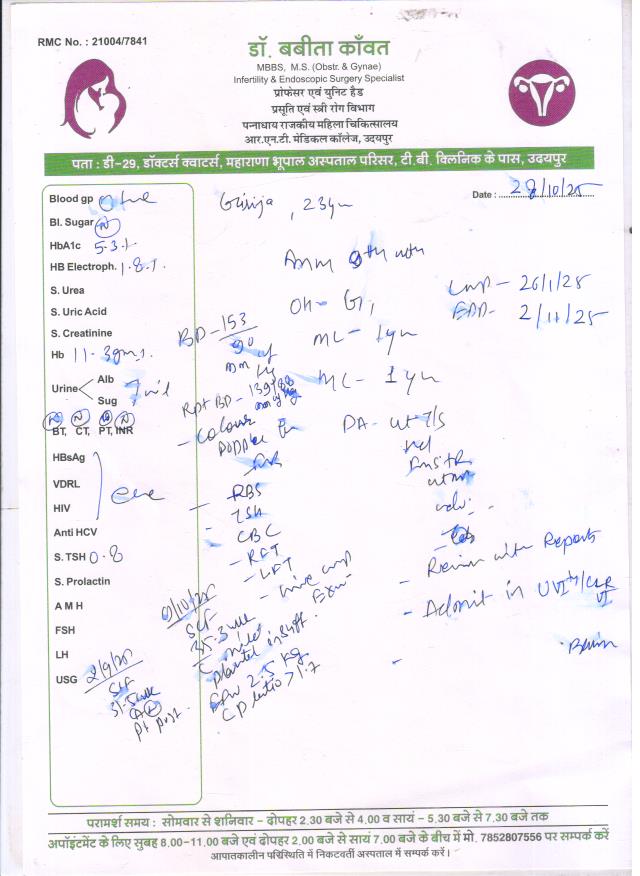 RMC No. : 21004/7841
डॉ. बबीता काँवत
MBBS, M.S. (Obstr. & Gynae)
Infertility & Endoscopic Surgery Specialist
प्रोफेसर एवं युनिट हैड
प्रसूति एवं स्त्री रोग विभाग
पन्नाधाय राजकीय महिला चिकित्सालय
आर.एन.टी. मेडिकल कॉलेज, उदयपुर
पता : डी-29, डॉक्टर्स क्वाटर्स, महाराणा भूपाल अस्पताल परिसर, टी.बी. क्लिनिक के पास, उदयपुर
Date : 28/10/25
Girija, 23yr
Blood gp O +ve
Bl. Sugar N
HbA1c 5.3%
HB Electroph. 1.8%
S. Urea
S. Uric Acid
S. Creatinine
Hb 11.3gm%
Urine Alb
Sug nil
BT, CT, PT, INR
HBsAg
VDRL
HIV
Anti HCV
S. TSH 0.8
S. Prolactin
A M H
FSH
LH
USG 2/9/25
SLF
31.5wk
Pt post.
Amm 9th mth
LMP - 26/1/25
EDD - 2/11/25
OH - G1,
ML - 1yr
MC - 1yr
BD - 153
90
mm Hg
Rpt BD - 139/88
- Colour
PA - ut T/S
- RBS
- TSH
- CBC
- RFT
- LFT
- Urine comp
Exm
adv:
- Review with Reports
- Admit in
9/10/25
SLF
35.3wk
C mild
placental insuff.
EFW 2.5 kg
CP ratio > 1.7
परामर्श समय : सोमवार से शनिवार - दोपहर 2.30 बजे से 4.00 व सायं - 5.30 बजे से 7.30 बजे तक
अपॉइंटमेंट के लिए सुबह 8.00-11.00 बजे एवं दोपहर 2.00 बजे से सायं 7.00 बजे के बीच में मो. 7852807556 पर सम्पर्क करें
आपातकालीन परिस्थिति में निकटवर्ती अस्पताल में सम्पर्क करें।